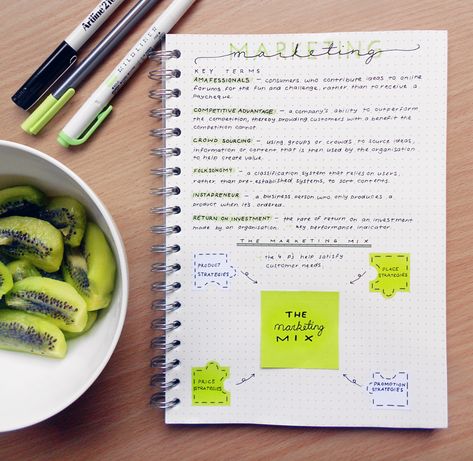 Artline 200
MILDLINER
MARKETING
marketing
KEY TERMS
AMAFESSIONALS - consumers who contribute ideas to online
forums for the fun and challenge, rather than to receive a
paycheque.
COMPETITIVE ADVANTAGE - a company's ability to outperform
the competition, thereby providing customers with a benefit the
competition cannot.
CROWD SOURCING - using groups or crowds to source ideas,
information or content that is then used by the organisation
to help create value.
FOLKSONOMY - a classification system that relies on users,
rather than pre-established systems, to sort contents.
INSTAPRENEUR - a business person who only produces a
product when it's ordered.
RETURN ON INVESTMENT - the rate of return on an investment
made by an organisation. key performance indicator.
THE MARKETING MIX
the 4 p's help satisfy
customer needs.
PRODUCT
STRATEGIES
PLACE
STRATEGIES
THE
marketing
MIX
PRICE
STRATEGIES
PROMOTION
STRATEGIES